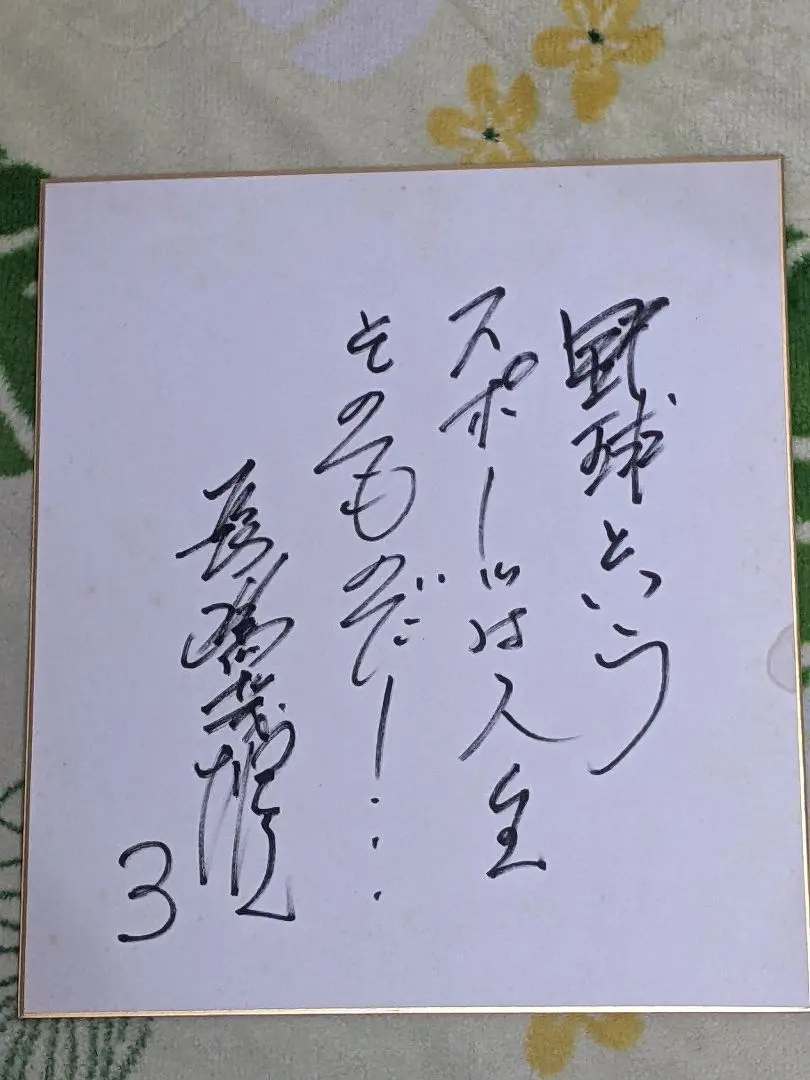 野球という
スポーツは人生
そのものだー...
長嶋茂雄
3